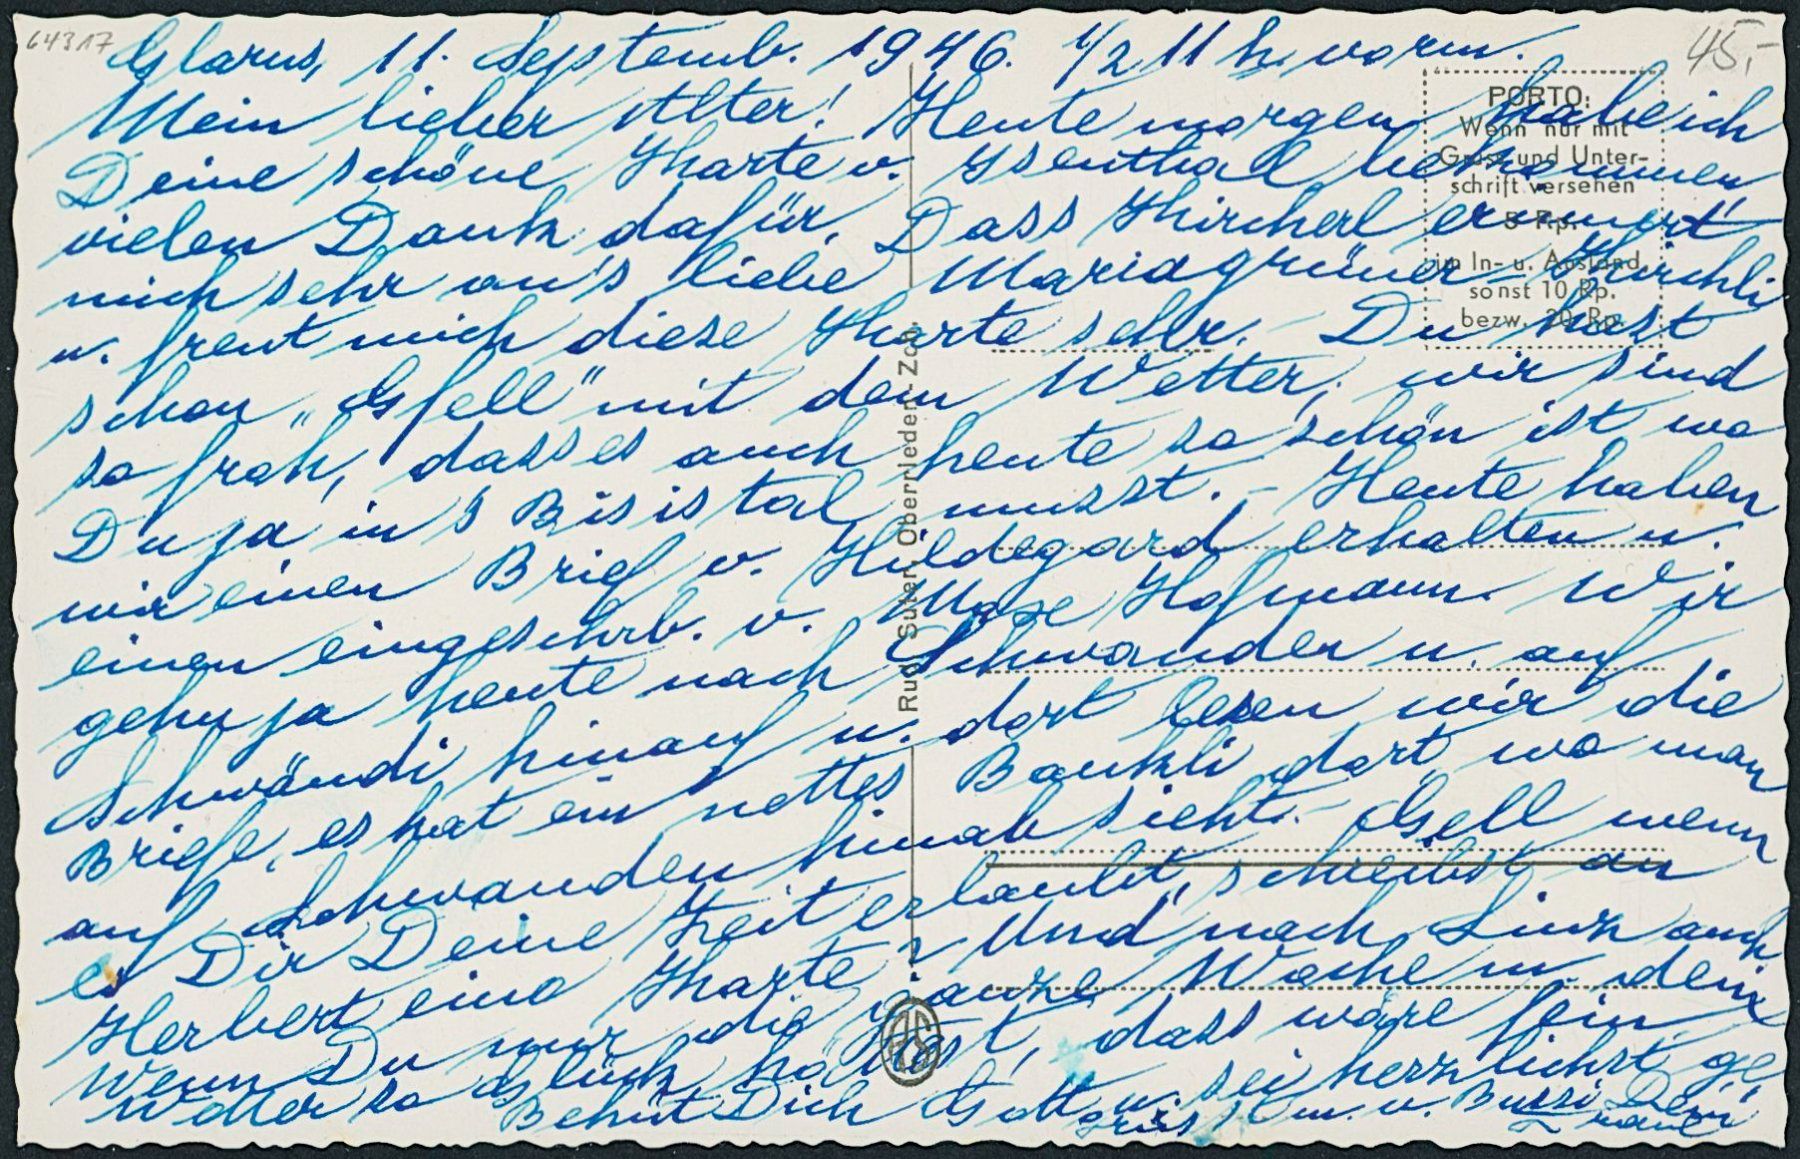 64317
45,-
Glarus, 11. Septemb. 1946. 1/2 11 h. vorm.
Mein lieber Alter! Heute morgen habe ich
Deine schöne Kharte v. Isenthal bekommen
vielen Dank dafür, Dass Khircherl erinnert
mich sehr an's liebe Mariagrüner-Khirchli
u. freut mich diese Kharte sehr. - Du hast
schon „Gfell" mit dem Wetter, wir sind
so froh, dass es auch heute so schön ist wo
Du ja in's Bisistal musst. - Heute haben
wir einen Brief v. Hildegard erhalten u.
einen eingeschrb. v. Maxe Hofmann. Wir
gehn ja heute nach Schwanden u. auf
Schwändi hinauf u. dort lesen wir die
Briefe, es hat ein nettes Bankli dort, wo man
auf Schwanden hinab sieht. - Gsell wenn
es Dir Deine Zeit erlaubt, schreibst an
Herbert eine Kharte? Und nach Linz auch
Wenn Du nur die ganze Woche m. dem
Wetter so Glück hättest, dass wäre fein.
Behüt Dich Gott u. sei herzlichst ge
grüsst u. v. Bussi Dein
PORTO:
Wenn nur mit
Gruss und Unter-
schrift versehen
5 Rp.
im In- u. Ausland
sonst 10 Rp.
bezw. 20 Rp.
Rud. Suter, Oberrieden-Zch.
RS